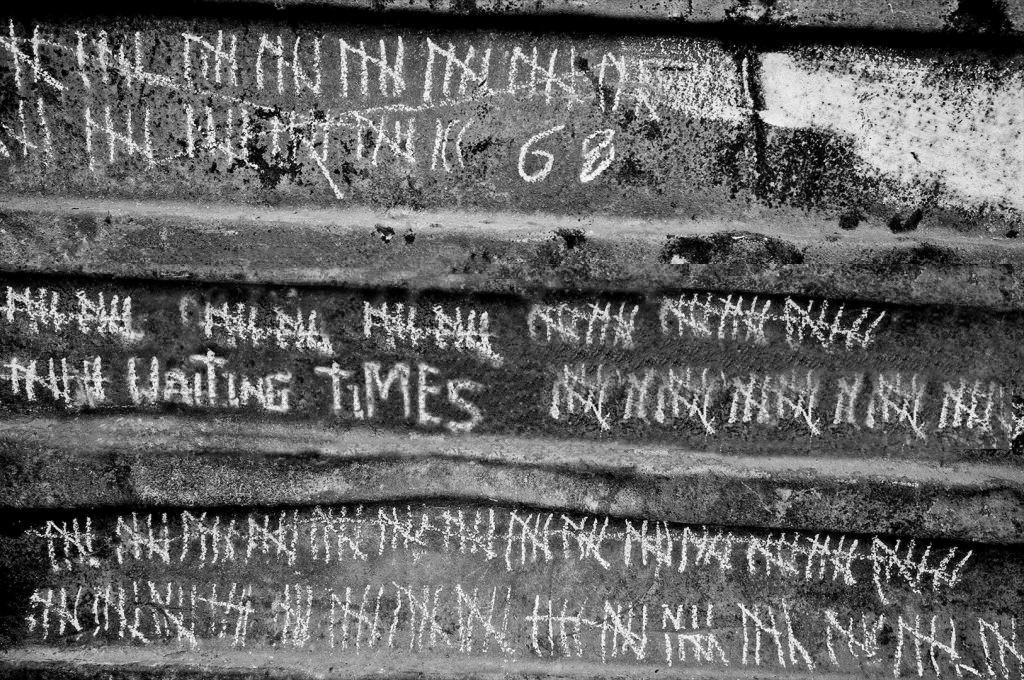 68
WaiTiNG TiMES